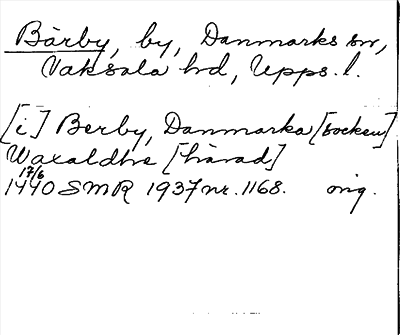 Bärby, by, Danmarks sn,
Vaksala hd, Upps. l.
[i] Berby, Danmarka [socken]
Waxaldhr [härad]
17/6
1440 SMR 1937 nr. 1168. orig.